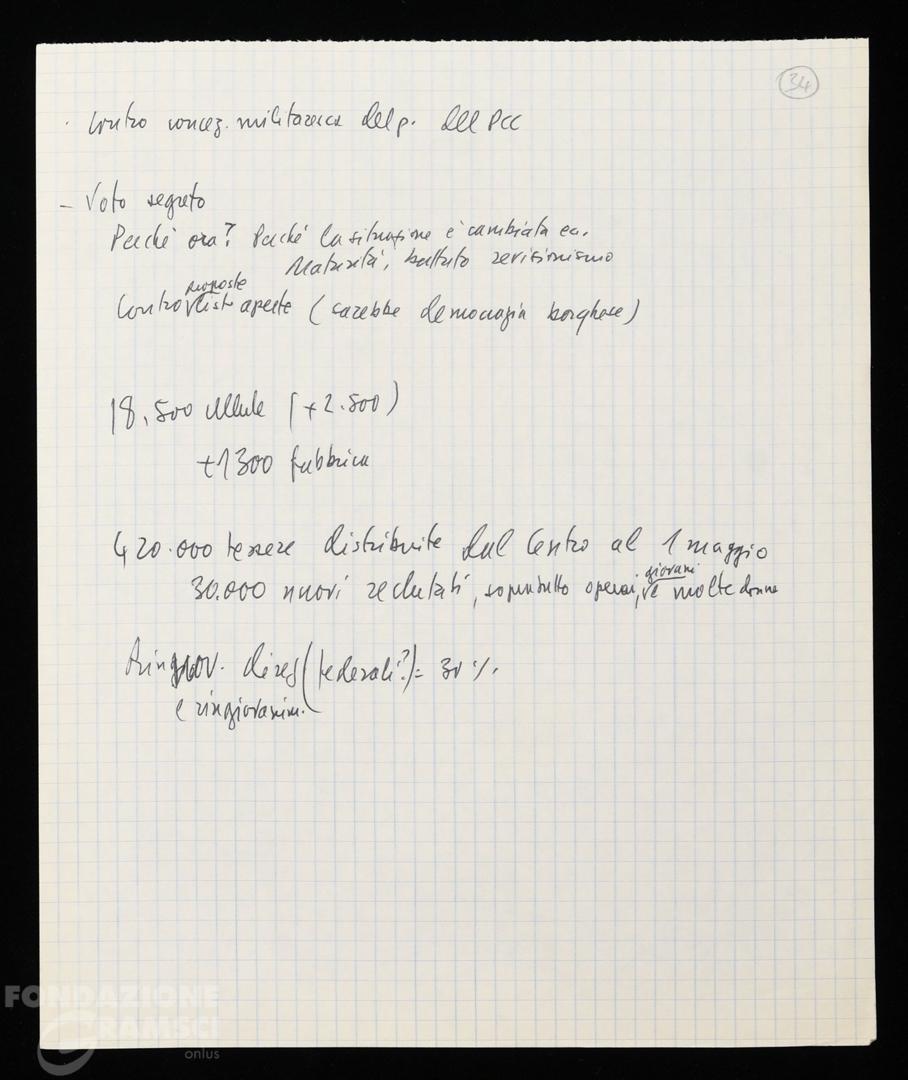 34
· Contro concez. militaresca del p. del PCC
– Voto segreto
Perché ora? Perché la situazione è cambiata ec.
Maturità, battuto revisionismo
proposte
Contro liste aperte (sarebbe democrazia borghese)
18.500 cellule (+2.500)
+1300 fabbrica
420.000 tessere distribuite dal Centro al 1 maggio
giovani
30.000 nuovi reclutati, soprattutto operai, e molte donne
Rinnov. direz (federali?) = 30%.
e ringiovanim.
FONDAZIONE
GRAMSCI
onlus